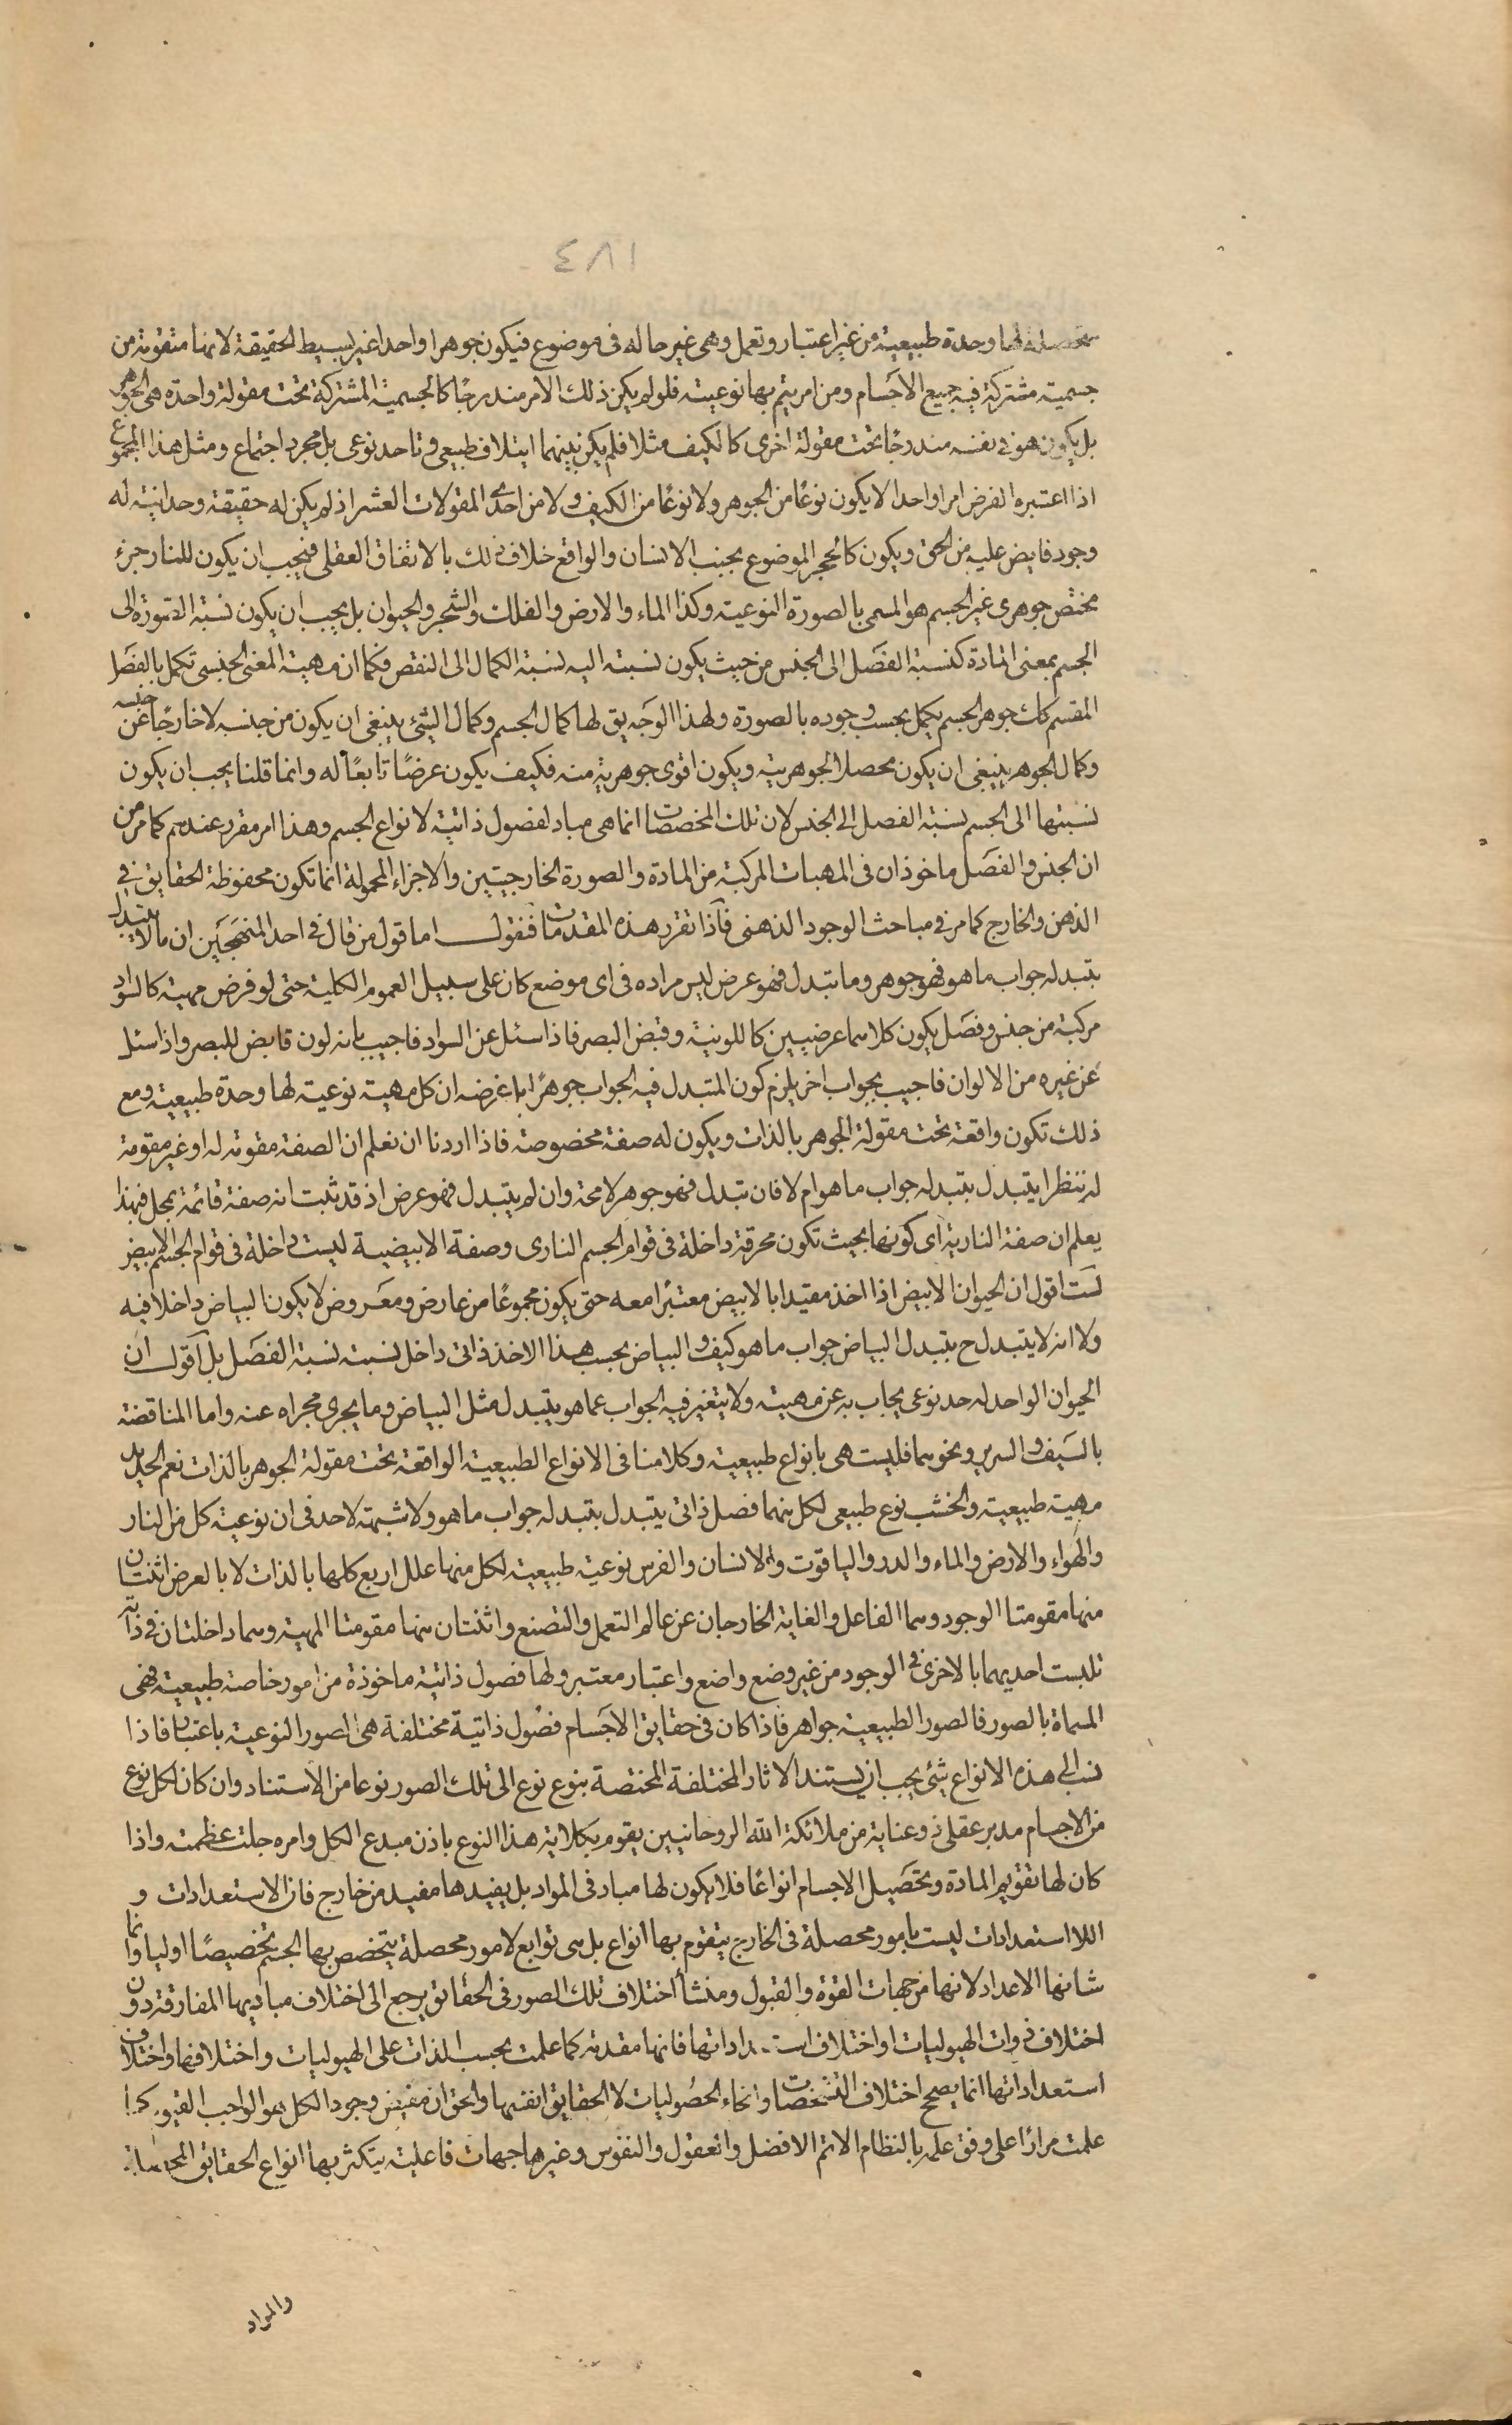 ٤٨١
محصلة لها وحدة طبيعية من غير اعتبار وتعمل وهى غير حاله فى موضوع فيكون جوهرا واحدا غير بسيط الحقيقة لانها متقومة من
جسمية مشتركة فيه جميع الاجسام ومن امر يتم بها نوعيته فلو لم يكن ذلك الامر مندرجًا كالجسمية المشتركة تحت مقولة واحدة هى الجوهر
بل يكون هو فى نفسه مندرجًا تحت مقولة اخرى كالكيف مثلا فلم يكن بينهما ايتلاف طبيعى وتاحد نوعى بل مجرد اجتماع ومثل هذا المجموع
اذا اعتبره الفرض امرا واحدا لا يكون نوعًا من الجوهر ولا نوعًا من الكيف ولا من احدى المقولات العشر اذ لم يكن له حقيقة وحدانية له
وجود فايض عليه من الحق ويكون كالحجر الموضوع بجنب الانسان والواقع خلاف ذلك بالاتفاق العقلى فيجب ان يكون للنار جزء
مختص جوهرى غير الجسم هو المسمى بالصورة النوعية وكذا الماء والارض والفلك والشجر والحيوان بل يجب ان يكون نسبة الصورة الى
الجسم بمعنى المادة كنسبة الفصل الى الجنس من حيث يكون نسبته اليه نسبة الكمال الى النقص فكما ان مهية المعنى الجنسى تكمل بالفصل
المقسم كك جوهر الجسم يكمل بحسب وجوده بالصورة ولهذا الوجه يق لها كمال الجسم وكمال الشئ ينبغى ان يكون من جنسه لا خارجًا عن جنسه
وكمال الجوهر ينبغى ان يكون محصلا لجوهريته ويكون اقوى جوهرية منه فكيف يكون عرضًا تابعًا له وانما قلنا يجب ان يكون
نسبتها الى الجسم نسبة الفصل الى الجنس لان تلك المخصصات انما هى مباد لفصول ذاتية لانواع الجسم وهذا امر مقرر عندهم كما مر من
ان الجنس والفصل ماخوذان فى المهيات المركبة من المادة والصورة الخارجيتين والاجزاء المحمولة انما تكون محفوظة الحقايق فى
الذهن والخارج كما مر فى مباحث الوجود الذهنى فاذا تقرر هذه المقدمات فنقول اما قول من قال فى احد المنهجين ان ما لا يتبدل
بتبدله جواب ما هو فهو جوهر وما تبدل فهو عرض ليس مراده فى اى موضع كان على سبيل العموم الكلية حتى لو فرض مهية كالسواد
مركبة من جنس وفصل يكون كلاهما عرضيين كاللونية وقبض البصر فاذا سئل عن السواد فاجيب بانه لون قابض للبصر واذا سئل
عن غيره من الالوان فاجيب بجواب اخر يلزم كون المتبدل فيه الجواب جوهرًا بل غرضه ان كل مهية نوعية لها وحدة طبيعية ومع
ذلك تكون واقعة تحت مقولة الجوهر بالذات ويكون له صفة مخصوصة فاذا اردنا ان نعلم ان الصفة مقومة له او غير مقومة
له ننظر ايتبدل بتبدله جواب ما هو ام لا فان تبدل فهو جوهر لا محة وان لم يتبدل فهو عرض اذ قد ثبت انه صفة قائمة بمحل فبهذا
يعلم ان صفة النارية اى كونها بحيث تكون محرقة داخلة فى قوام الجسم النارى وصفة الابيضية ليست داخلة فى قوام الجسم الابيض
لست اقول ان الحيوان الابيض اذا اخذ مقيدا بالابيض معتبرًا معه حتى يكون مجموعًا من عارض ومعروض لا يكون البياض داخلا فيه
ولا انه لا يتبدل ح بتبدل البياض جواب ما هو كيف والبياض بحسب هذا الاخذ ذاتى داخل نسبته نسبة الفصل بل اقول ان
الحيوان الواحد له حد نوعى يجاب به عن مهيته ولا يتغير فيه الجواب عما هو بتبدل مثل البياض وما يجرى مجراه عنه واما المناقضة
بالسيف والسرير ونحوهما فليست هى بانواع طبيعية وكلامنا فى الانواع الطبيعية الواقعة تحت مقولة الجوهر بالذات نعم الحديد
مهية طبيعية والخشب نوع طبيعى لكل منهما فصل ذاتى يتبدل بتبدله جواب ما هو ولا شبهة لاحد فى ان نوعية كل من النار
والهواء والارض والماء والدر والياقوت والانسان والفرس نوعية طبيعية لكل منها علل اربع كلها بالذات لا بالعرض اثنتان
منها مقومتا الوجود وهما الفاعل والغاية الخارجان عن عالم التعمل والتصنع واثنتان منها مقومتا المهية وهما داخلتان فى ذاته
تلبست احديهما بالاخرى فى الوجود من غير وضع واضع واعتبار معتبر ولها فصول ذاتية ماخوذة من امور خاصة طبيعية فهى
المسماة بالصور فالصور الطبيعية جواهر فاذا كان فى حقايق الاجسام فصُول ذاتية مختلفة هى الصور النوعية باعتبار فاذا
نسب الى هذه الانواع شئ يجب ان يستند الاثار المختلفة المختصة بنوع نوع الى تلك الصور نوعا من الاستناد وان كان لكل نوع
من الاجسام مدبر عقلى ذو عناية من ملائكة الله الروحانيين يقوم بكلاية هذا النوع باذن مبدع الكل وامره جلت عظمته واذا
كان لها تقويم المادة وتحصيل الاجسام انواعًا فلا يكون لها مباد فى المواد بل يفيدها مفيد من خارج فان الاستعدادات و
اللا استعدادات ليست بامور محصلة فى الخارج يتقوم بها انواع بل هى توابع لامور محصلة يتخصص بها الجسم تخصيصًا اوليا وانما
شانها الاعداد لانها من جهات القوة والقبول ومنشأ اختلاف تلك الصور فى الحقائق يرجع الى اختلاف مباديها المفارقة دون
اختلاف ذوات الهيوليات او اختلاف استعداداتها فانها مقدمة كما علمت بحسب الذات على الهيوليات واختلافها واختلاف
استعداداتها انما يصحح اختلاف التشخصات وانحاء الحصُوليات لا الحقايق انفسها والحق ان مفيض وجود الكل هو الواجب القيوم كما
علمت مرارًا على وفق علمه بالنظام الاتم الافضل والعقول والنفوس وغيرها جهات فاعلية يتكثر بها انواع الحقايق المحصلة
والمواد